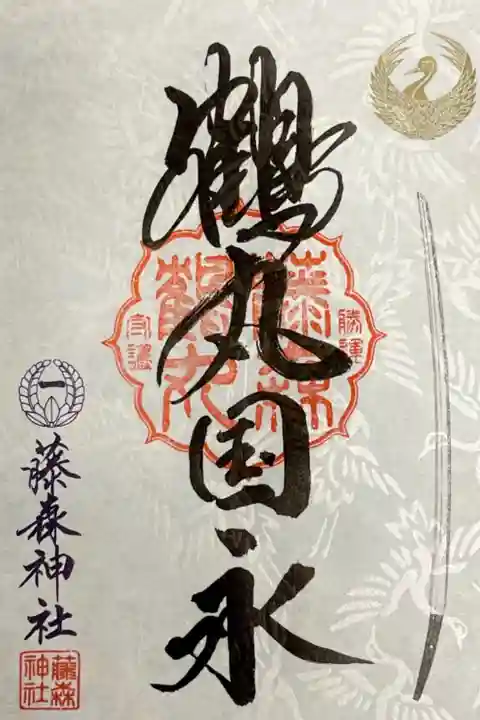 鶴丸国永
藤森
鶴丸
勝運
守護
一
藤森神社
藤森
神社